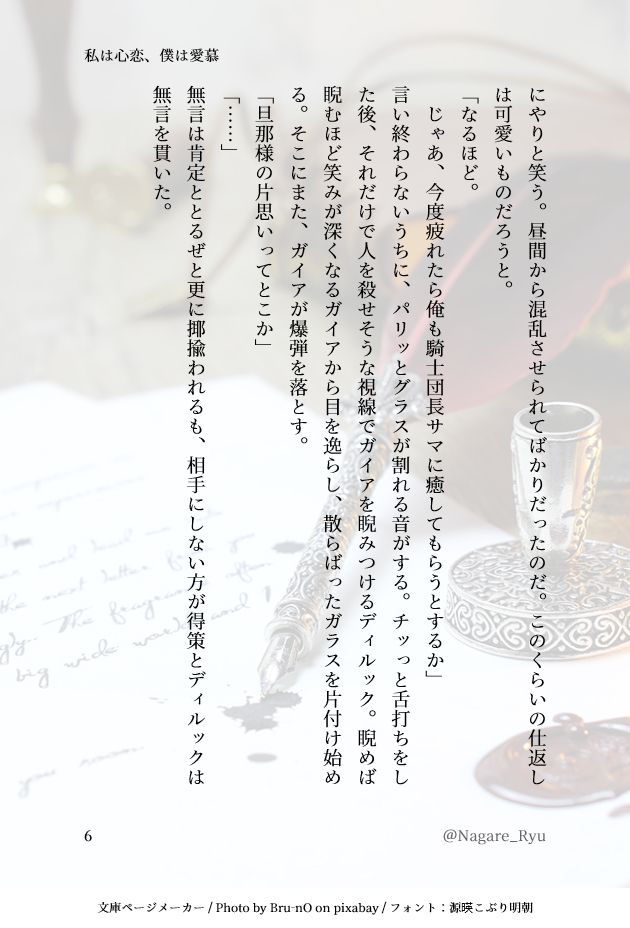 私は心恋、僕は愛慕
にやりと笑う。昼間から混乱させられてばかりだったのだ。このくらいの仕返し
は可愛いものだろうと。
「なるほど。
じゃあ、今度疲れたら俺も騎士団長サマに癒してもらうとするか」
言い終わらないうちに、パリッとグラスが割れる音がする。チッっと舌打ちをし
た後、それだけで人を殺せそうな視線でガイアを睨みつけるディルック。睨めば
睨むほど笑みが深くなるガイアから目を逸らし、散らばったガラスを片付け始め
る。そこにまた、ガイアが爆弾を落とす。
「旦那様の片思いってとこか」
「……」
無言は肯定ととるぜと更に揶揄われるも、相手にしない方が得策とディルックは
無言を貫いた。
6
@Nagare_Ryu
文庫ページメーカー / Photo by Bru-nO on pixabay / フォント：源暎こぶり明朝
the next letter for you
The fragrant
big wide world and
you